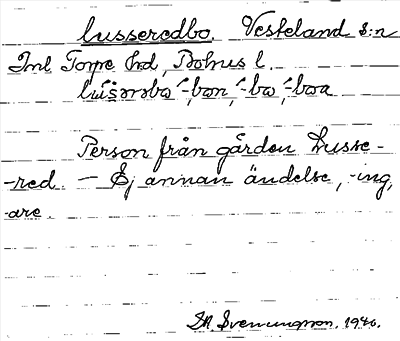 lusseredbo. Vesteland s:n
Inl Torpe hd, Bohus l.
-bon, -bo, -boa
Person från gården Lusse-
-red. — Ej annan ändelse, -ing,
-are.
Svenungsson. 1946.